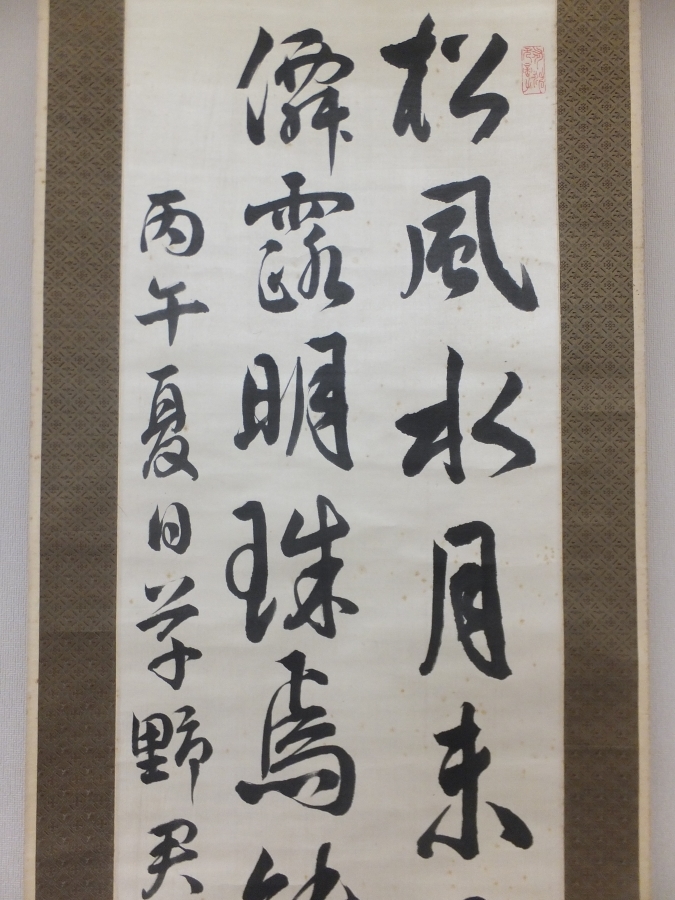 松風水月未
僊露明珠焉
丙午夏日草野君